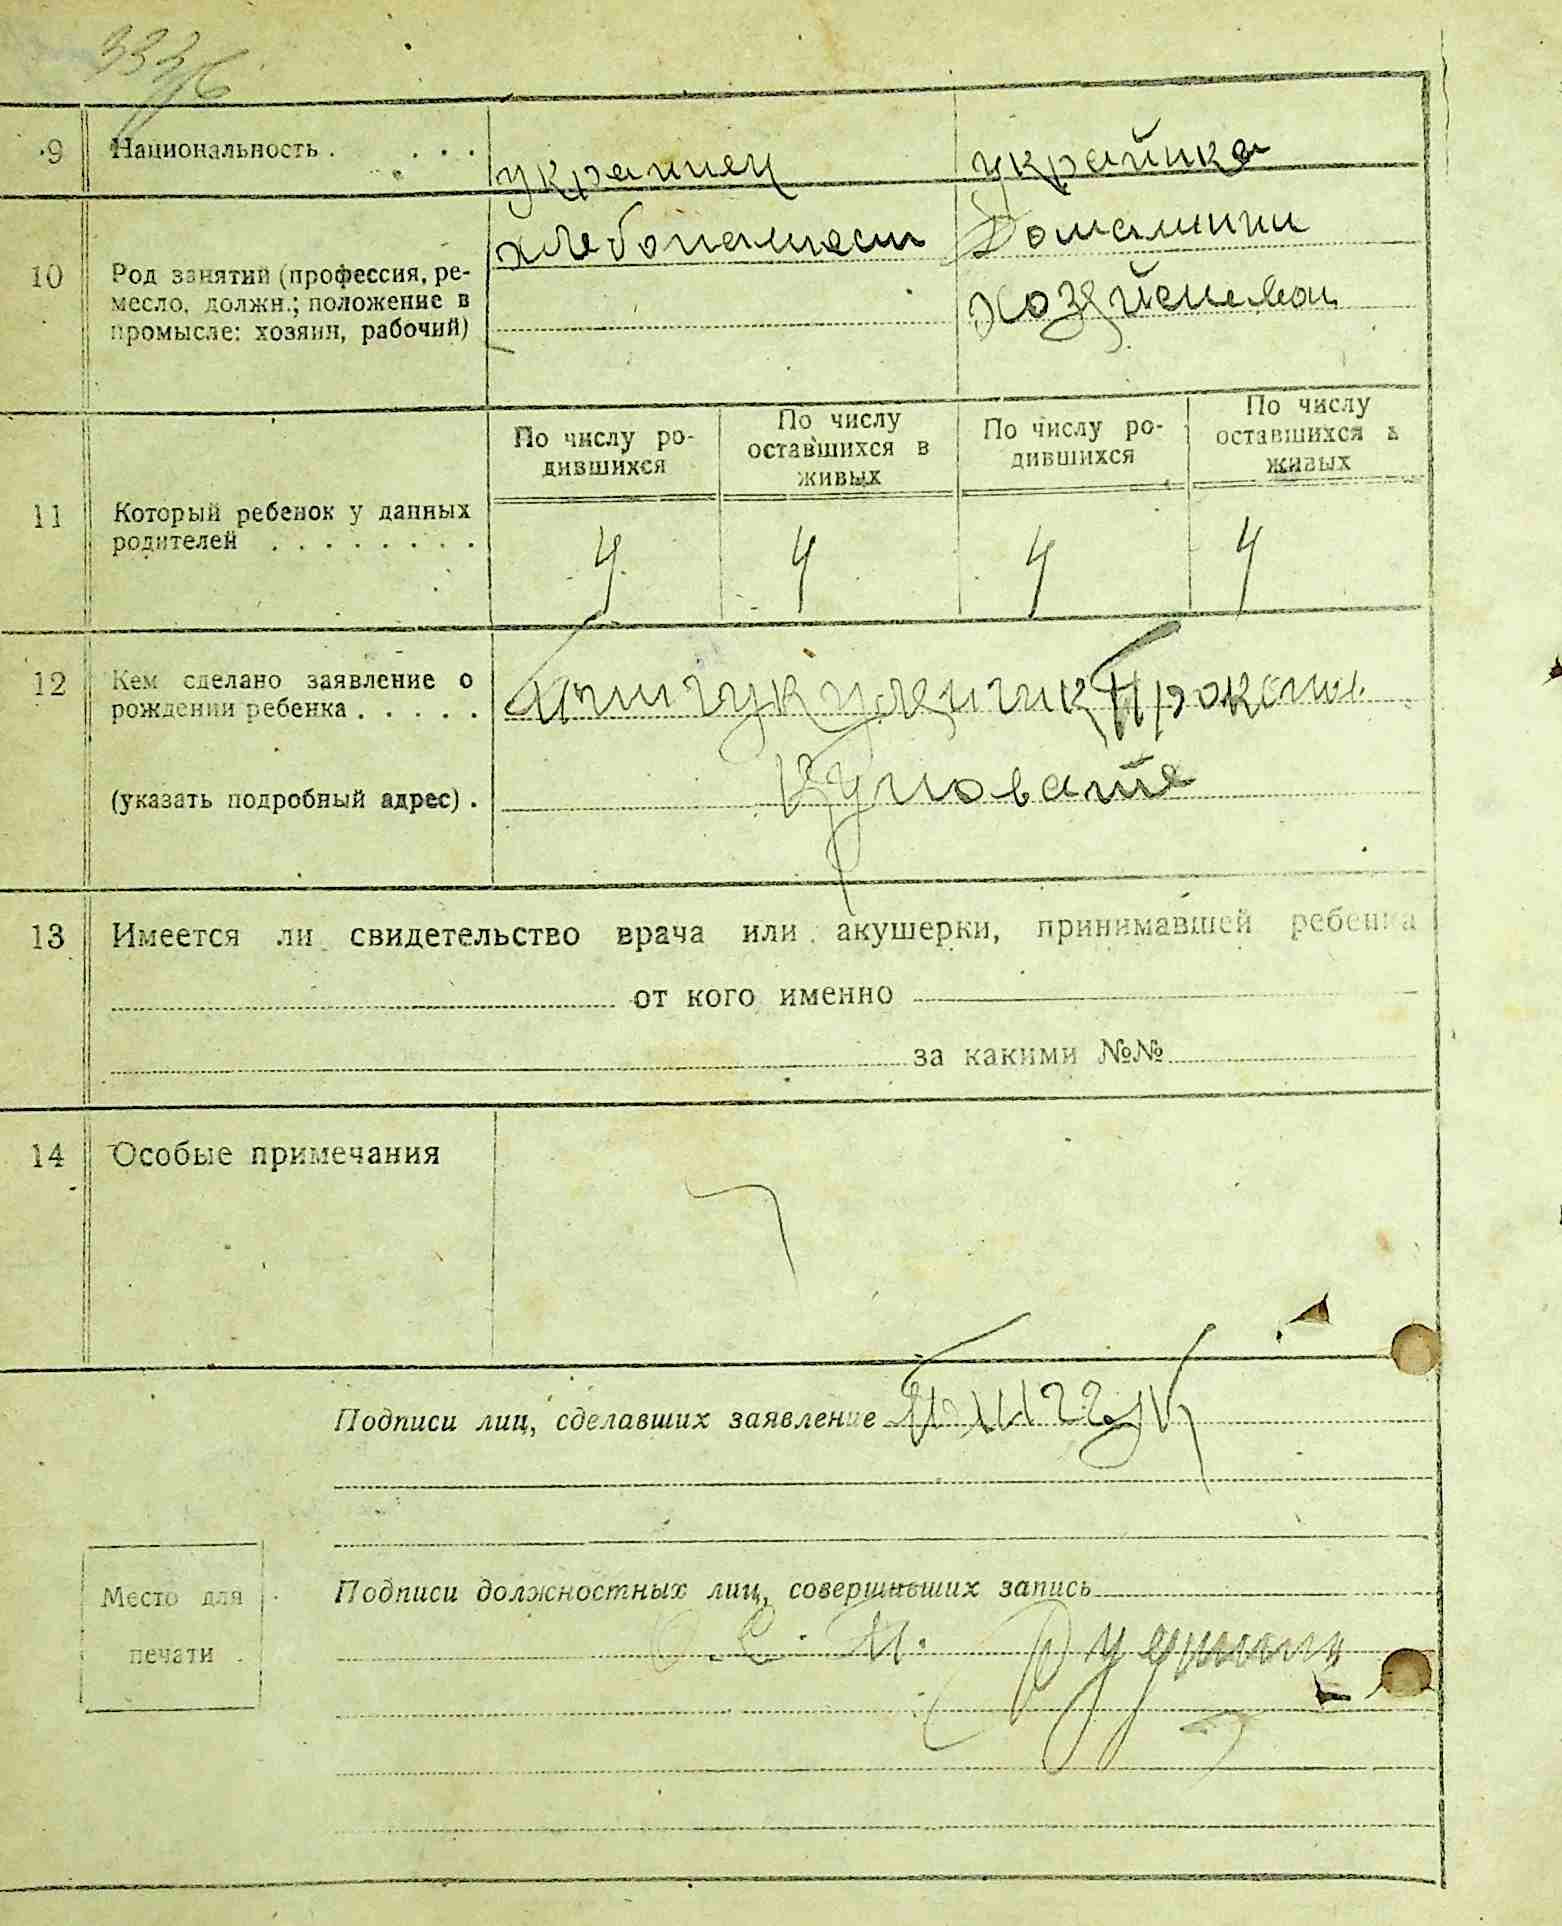 9 Национальность . . . . украинец украинка
10 Род занятий (профессия, ре-
месло, должн.; положение в
промысле: хозяин, рабочий)
хлебопашест Домашни
хозяйсшвом
11 Который ребенок у данных
родителей . . . . . . . .
По числу ро-
дившихся
По числу
оставшихся в
живых
По числу ро-
дившихся
По числу
оставшихся в
живых
4 4 4 4
12 Кем сделано заявление о
рождении ребенка . . . . .
(указать подробный адрес) .
Куповате
13 Имеется ли свидетельство врача или акушерки, принимавшей ребенка
от кого именно
за какими №№
14 Особые примечания
Подписи лиц, сделавших заявление
Подписи должностных лиц, совершивших запись
Место для
печати